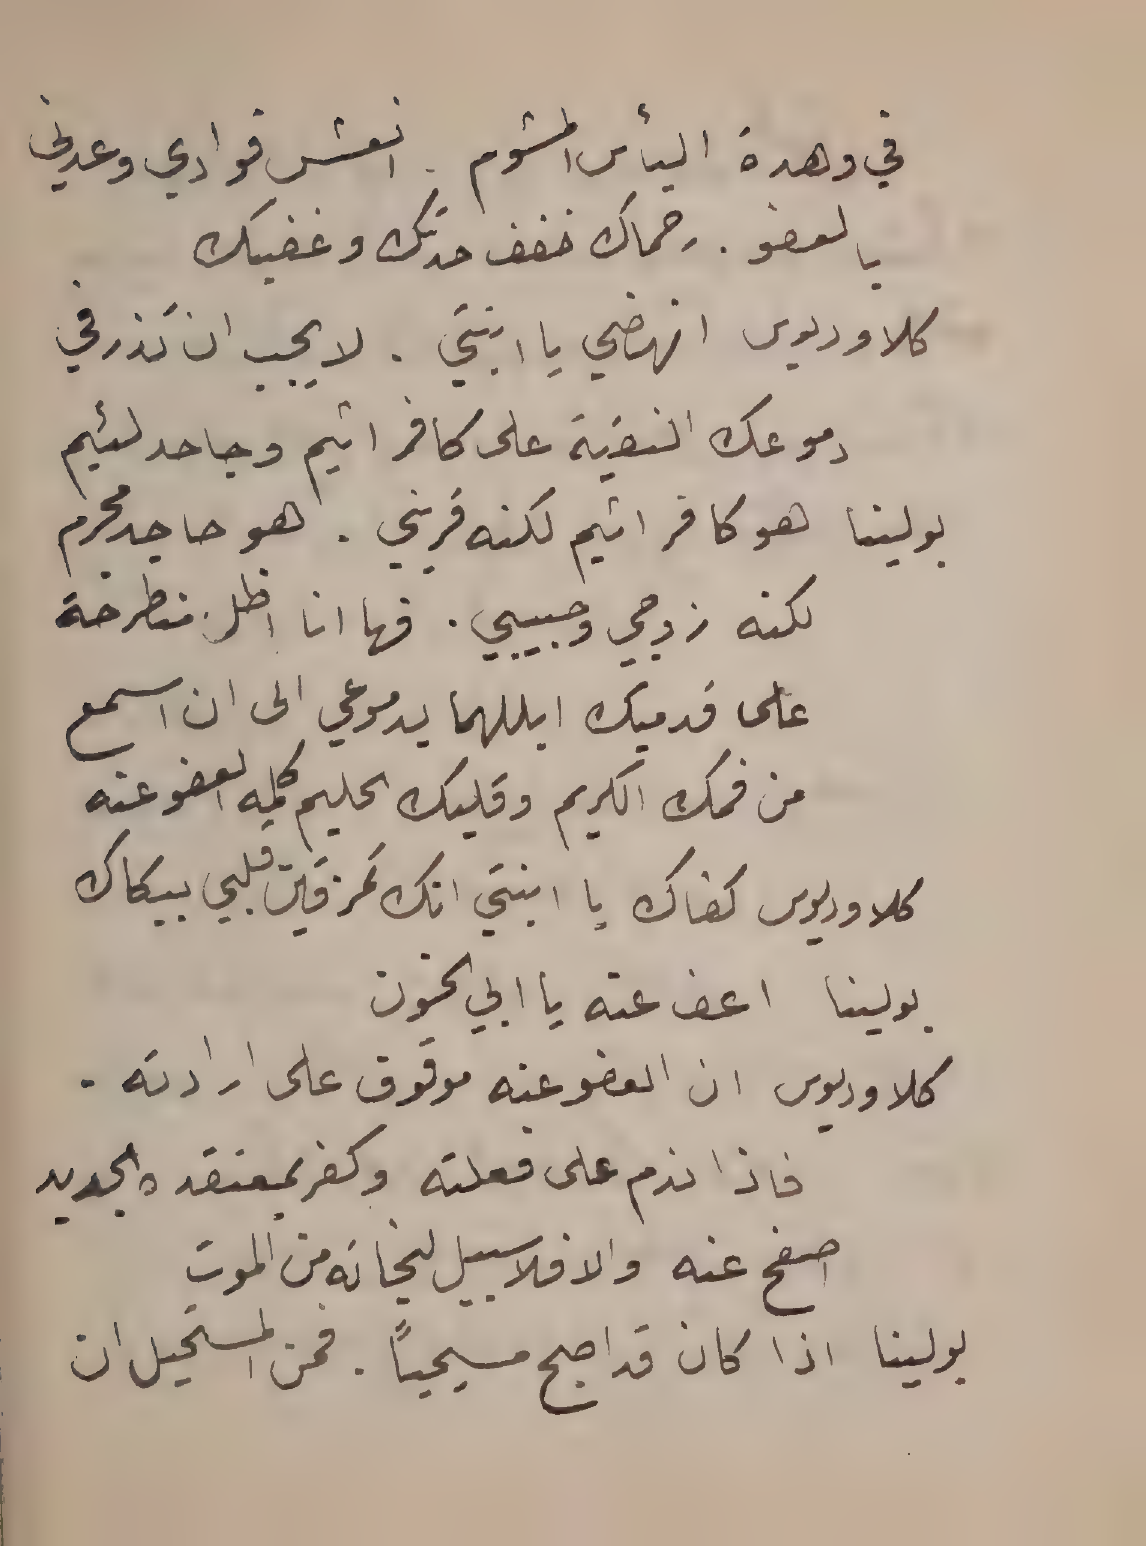 في وهدة اليأس المشوم . انعش فوادي وعدني
بالعفو . رحماك خفف حدتك وغضبك
كلاوديوس انهضي يا ابنتي . لا يجب ان تذرفي
دموعك النقية على كافر اثيم وجاحد لئيم
بولينا هو كافر اثيم لكنه قريني . هو جاحد مجرم
لكنه زوجي وحبيبي . فها انا اظل منطرحة
على قدميك ابللهما بدموعي الى ان اسمع
من فمك الكريم وقلبك الحليم كلمه العفو عنه
كلاوديوس كفاك يا ابنتي انك تمزقين قلبي ببكاك
بولينا اعف عنه يا ابي الحنون
كلاوديوس ان العفو عنه موقوف على ارادته .
فاذا ندم على فعلته وكفر بمعتقده الجديد
اصفح عنه والا فلا سبيل لنجاته من الموت
بولينا اذا كان قد اصبح مسيحياً . فمن المستحيل ان